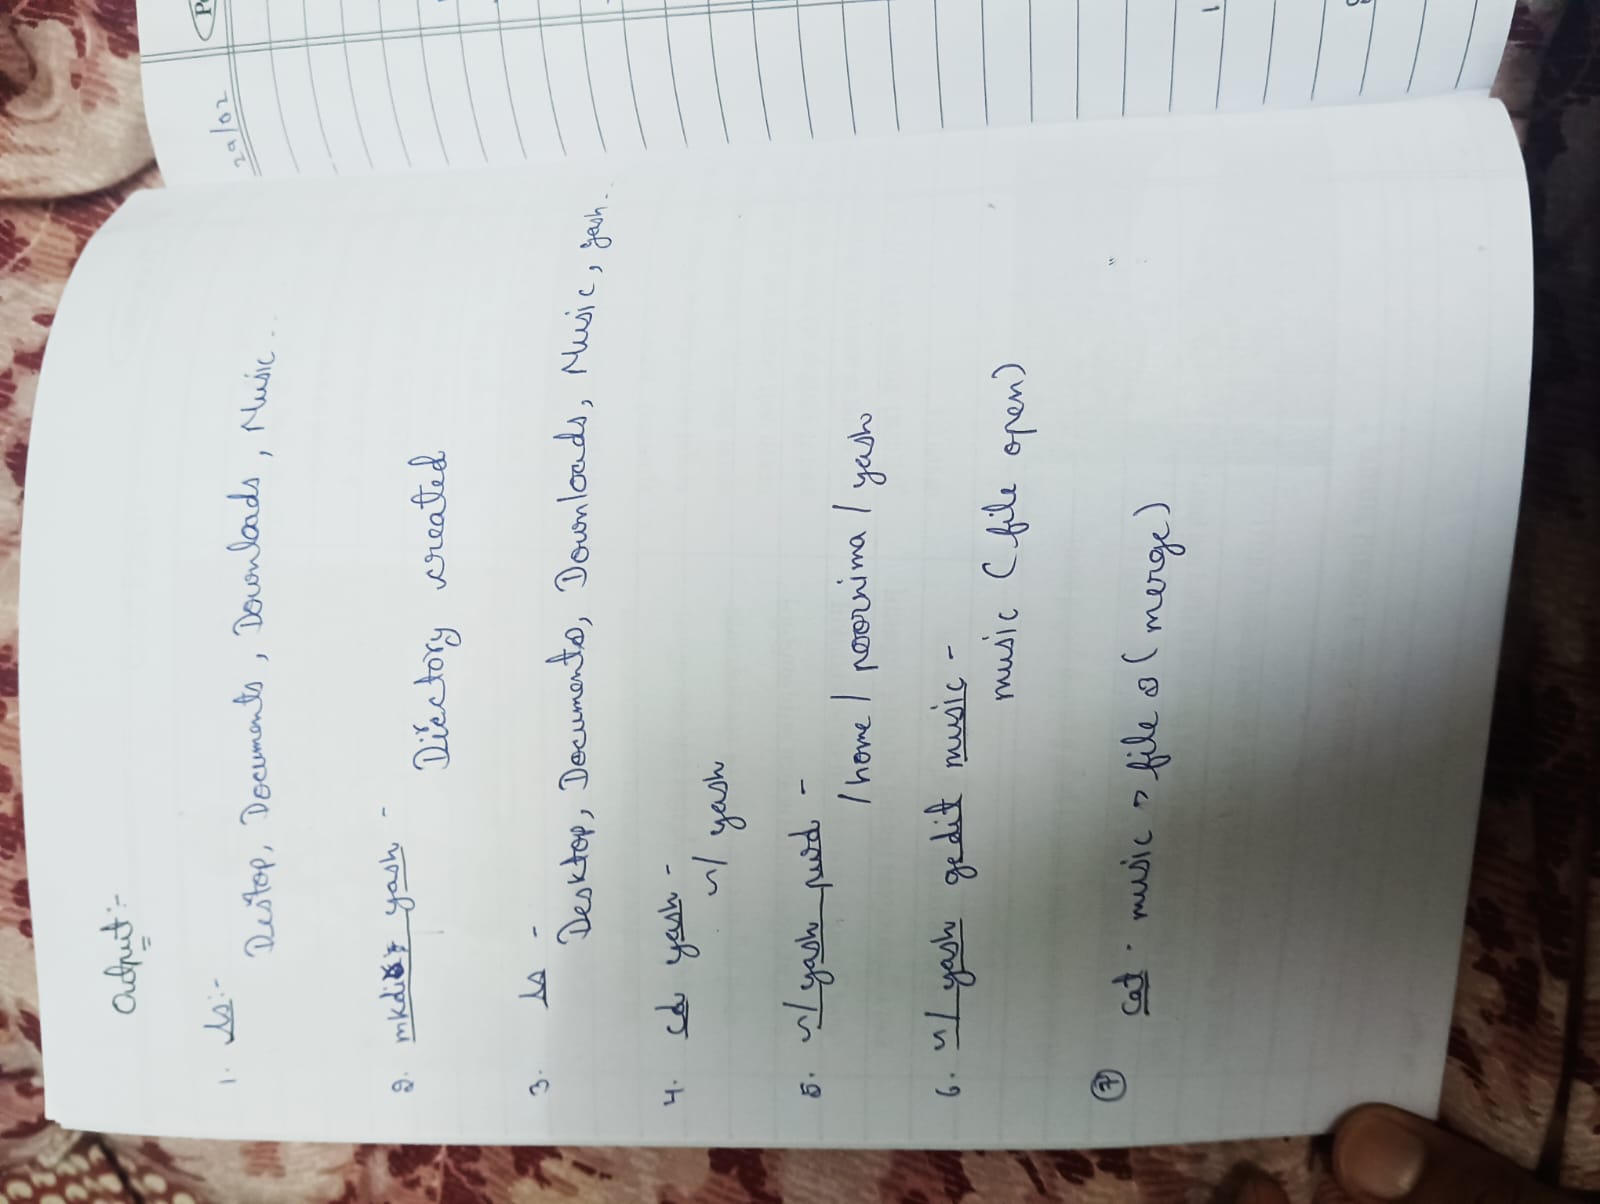 29/02
Output:-
1. ls:-
Destop, Documents, Downloads, Music...
2. mkdir yash -
Directory created
3. ls -
Desktop, Documents, Downloads, Music, yash...
4. cd yash -
~/yash
5. ~/yash pwd -
/home/poornima/yash
6. ~/yash gedit music -
music (file open)
7 cat . music > file 3 (merge)